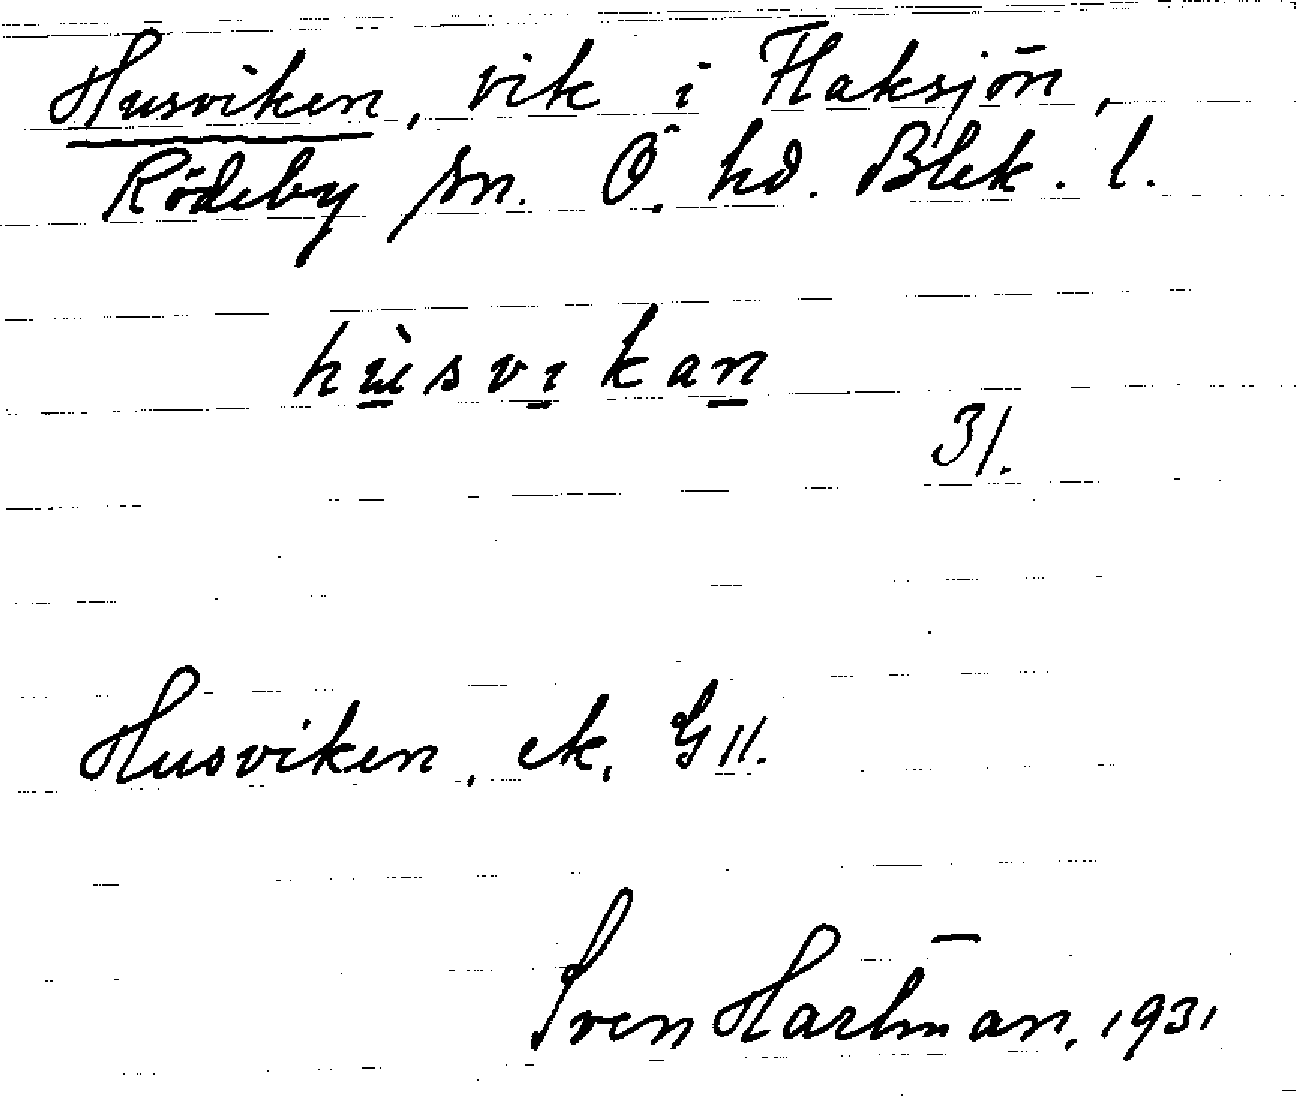 Husviken, vik i Flaksjön,
Rödeby sn. Ö. hd. Blek. l.
hùsvıkan
31.
Husviken, ek. G11.
Sven Hartman, 1931